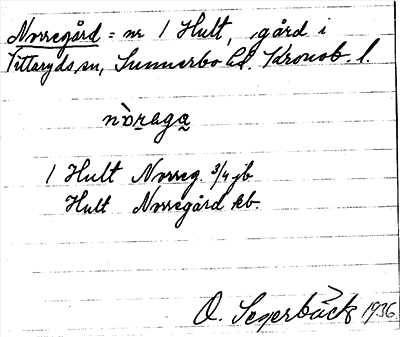 Norregård = nr 1 Hult, gård i
Vittaryds sn, Sunnerbo hd. Kronob. l.
nòraga
1 Hult Norreg. 3/4 jb
Hult Norregård kb.
O. Segerbäck 1936.